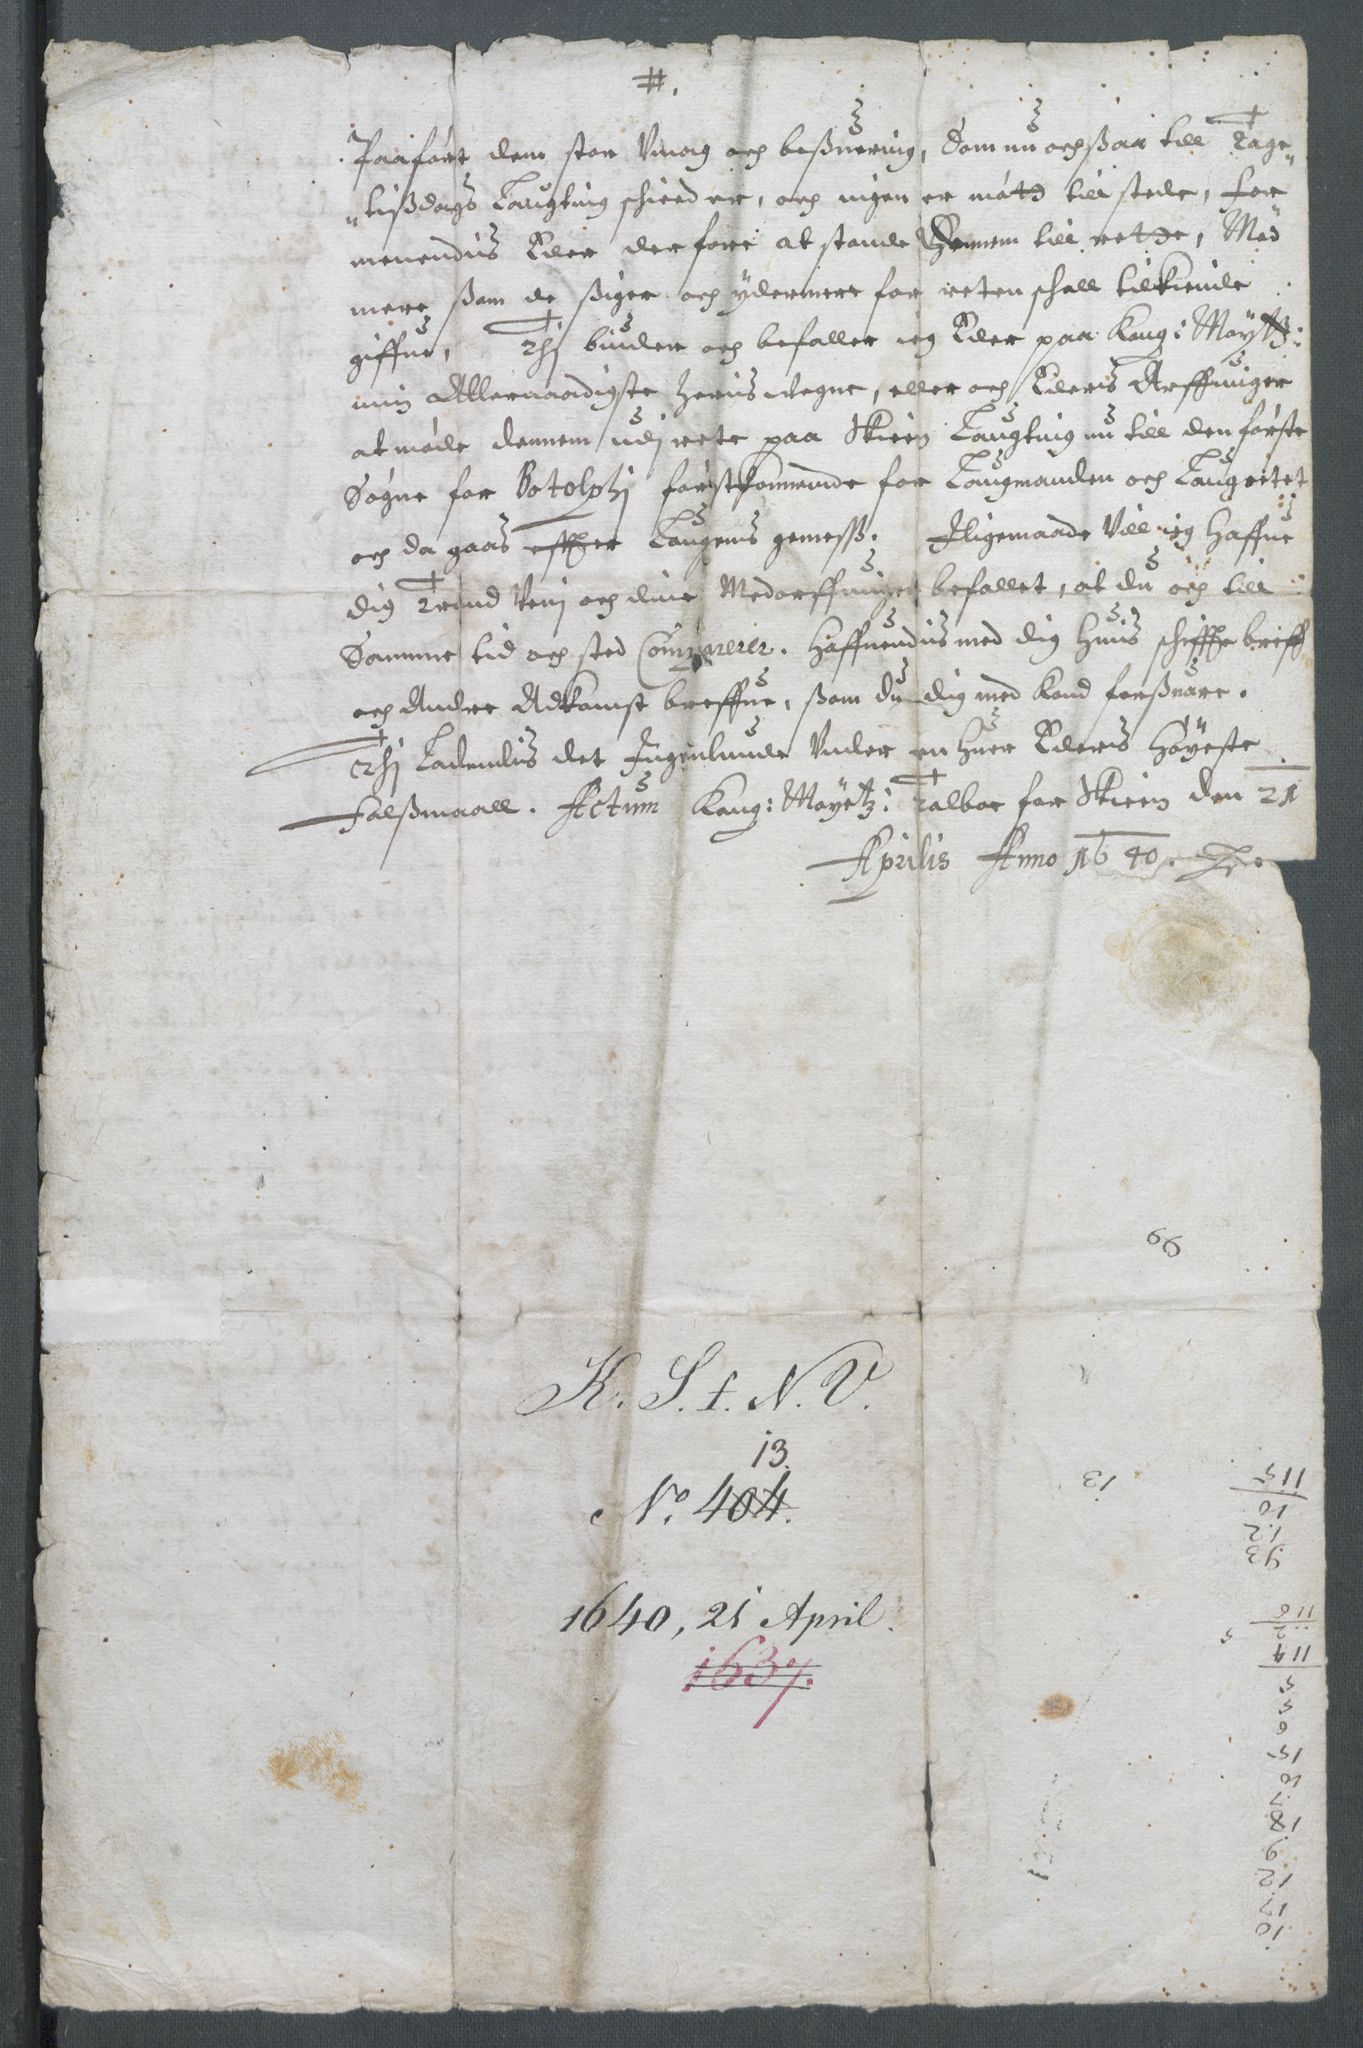 #.
Paaført dem stor Vmag och beßuering, Som nu ochßaa till Tage-
"lißdags Laugting schieed er, och ingen er møtt till stede, for
menendus Eder derfore at stande Hannem till rette, Med
mere ßom de ßiger och ÿdermere for reten schall tilkiende
giffue, Thj biuder och befaller ieg Eder paa Kong: Maÿtz:
min Allernaadigste herris wegne, eller och Eders Arffuinger
at møde dennem udj rete paa Skien Laugting nu till den første
Søgne for Botolphj førstkommende for Laugmanden och Laugretet
och da gaas effther Laugens gemeß. Iligemaade Vill ieg Haffue
dig Trond Venj och dine Medarffuinger befallet, at du och till
Samme tid och sted Comparerer. Haffuendis med dig huis schiffte breff
och Andre Adkomst breffue, ßom du dig med kand forßuare.
Thj Ladendis det Ingenlunde Vnder en huer Ederis Høÿeste
Falßmaall. Actum Kong: Maÿetz: Kalbar for Skien den 21
Aprilis Anno 1640.
66
K. S. f. N. V.
13.
No. 404.
1640, 21 April.
1637.
13
115
10
12
93
116
2
5
114
5
5
6
15
10
7
18
9
12
17
10